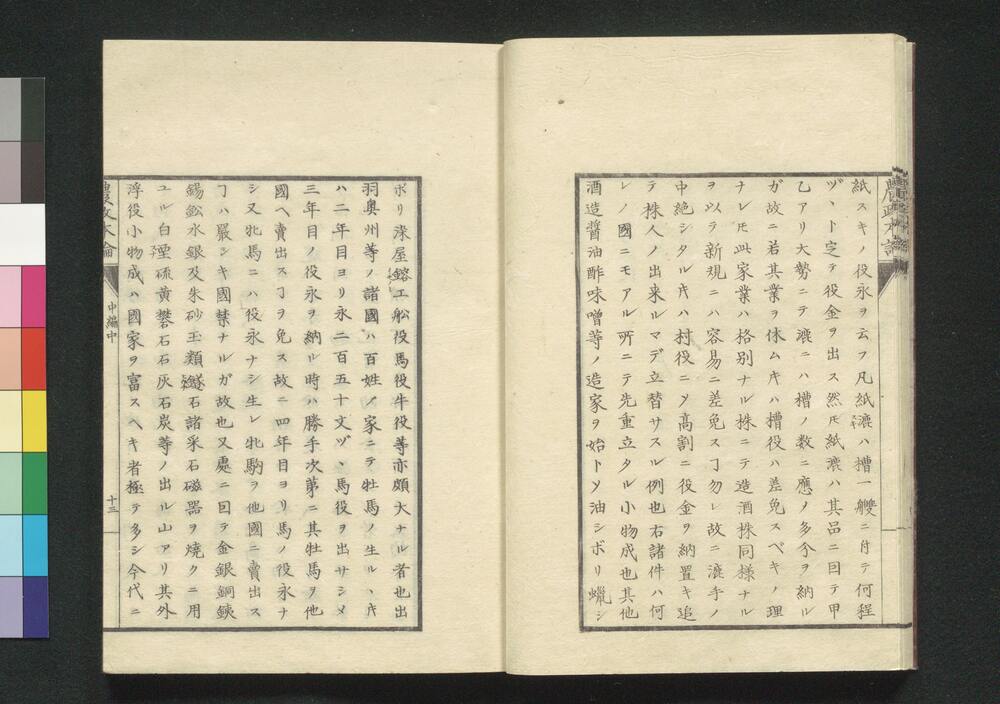 農政本論
紙スキノ役永ヲ云フ凡紙漉ハ槽一艘ニ付テ何程
ヅヽト定テ役金ヲ出ス然𪜈紙漉ハ其品ニ曰テ甲
乙アリ大勢ニテ漉ニハ槽ノ数ニ應ノ多今ヲ納ル
ガ故ニ若其業ヲ休ムキハ槽役ハ差免スベキノ理
ナレ𪜈此家業ハ格別ナル株ニテ造酒株同様ナル
ヲ以ラ新規ニハ容易ニ差免スヿ勿レ故ニ漉手ノ
中絶シタルキハ村役ニメ高割ニ役金ヲ納置キ追
テ株人ノ出来ルマデ立替サスル例也右諸件ハ何
レノ國ニモアル所ニテ先重立タル小物成也其他
酒造醤油酢味噌等ノ造家ヲ始トメ油シボリ蠟シ
ボリ染屋鎔工舩役馬役牛役等亦頗大ナル者也出
羽奥州等ノ諸國ハ百姓ノ家ニテ牡馬ノ生ルヽキ
ハ二年目ヨリ永二百五十文ヅヽ馬役ヲ出サシメ
三年目ノ役永ヲ納ル時ハ勝手次第ニ其牡馬ヲ他
國ヘ賣出スヿヲ免ス故ニ四年目ヨリ馬ノ役永ナ
シ又牝馬ニハ役永ナシ生レ牝駒ヲ他國ニ賣出ス
ヿハ嚴シキ國禁ナルガ故也又處ニ曰テ金銀銅鐵
錫鈆水銀及朱砂玉類鐩石諸采石磁器ヲ焼クニ用
ユル白堊硫黄礬石石灰石炭等ノ出ル山アリ其外
浮役小物成ハ國家ヲ富スヘキ者極テ多シ今代ニ
農政本論
中編中
十三